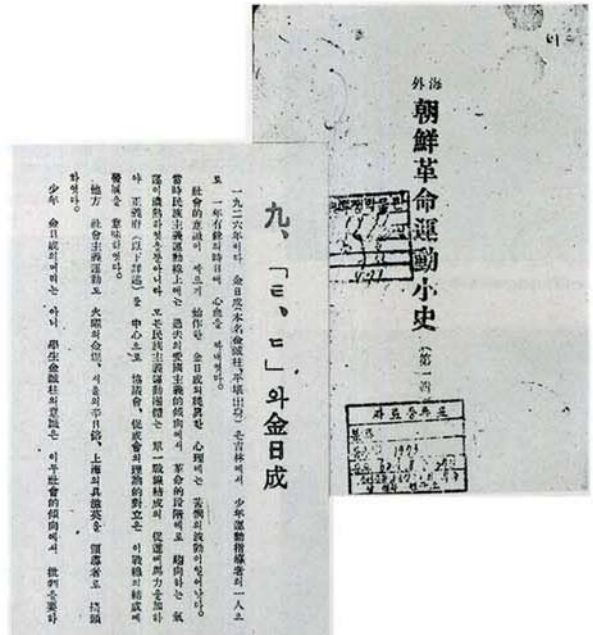 海外
朝鮮革命運動小史
(第一
九、「ㅌ、ㄷ」와金日成
一九二六年이다 金日成(本名金成柱、平壤出身)은吉林에서 少年運動指導者의一人으
로 一年有餘의時日에 心血을 짜내엿다。
社會的意識이 싹트기 始作한 金日成의純眞한 心理에는 苦悶의波動이일어낫다。
當時民族主義運動線上에는 過去의愛國主義的傾向에서 革命的段階에로 趨向하는 氣
運이濃熱하엿을뿐아니라 모든民族主義運動團體는 單一戰線結成의 促進에 加하
야 正義府(以下詳述)를 中心으로 協議會、促成會의理論的對立은 이戰線의結成에
發展을 意味하엿다。
他方 社會主義運動도 火曜의金燦、서울의辛日鎔、上海의 領導者로 擡頭
하엿다。
少年 金日成의머리는 아니 學生金成柱의意識은 이두社會的傾向에서 批判을要하
1973